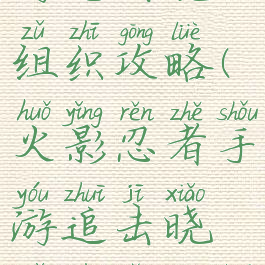 zǔ zhī gōng lüè
组织攻略(
huǒ yǐng rěn zhě shǒu
火影忍者手
yóu zhuī jī xiǎo
游追击晓